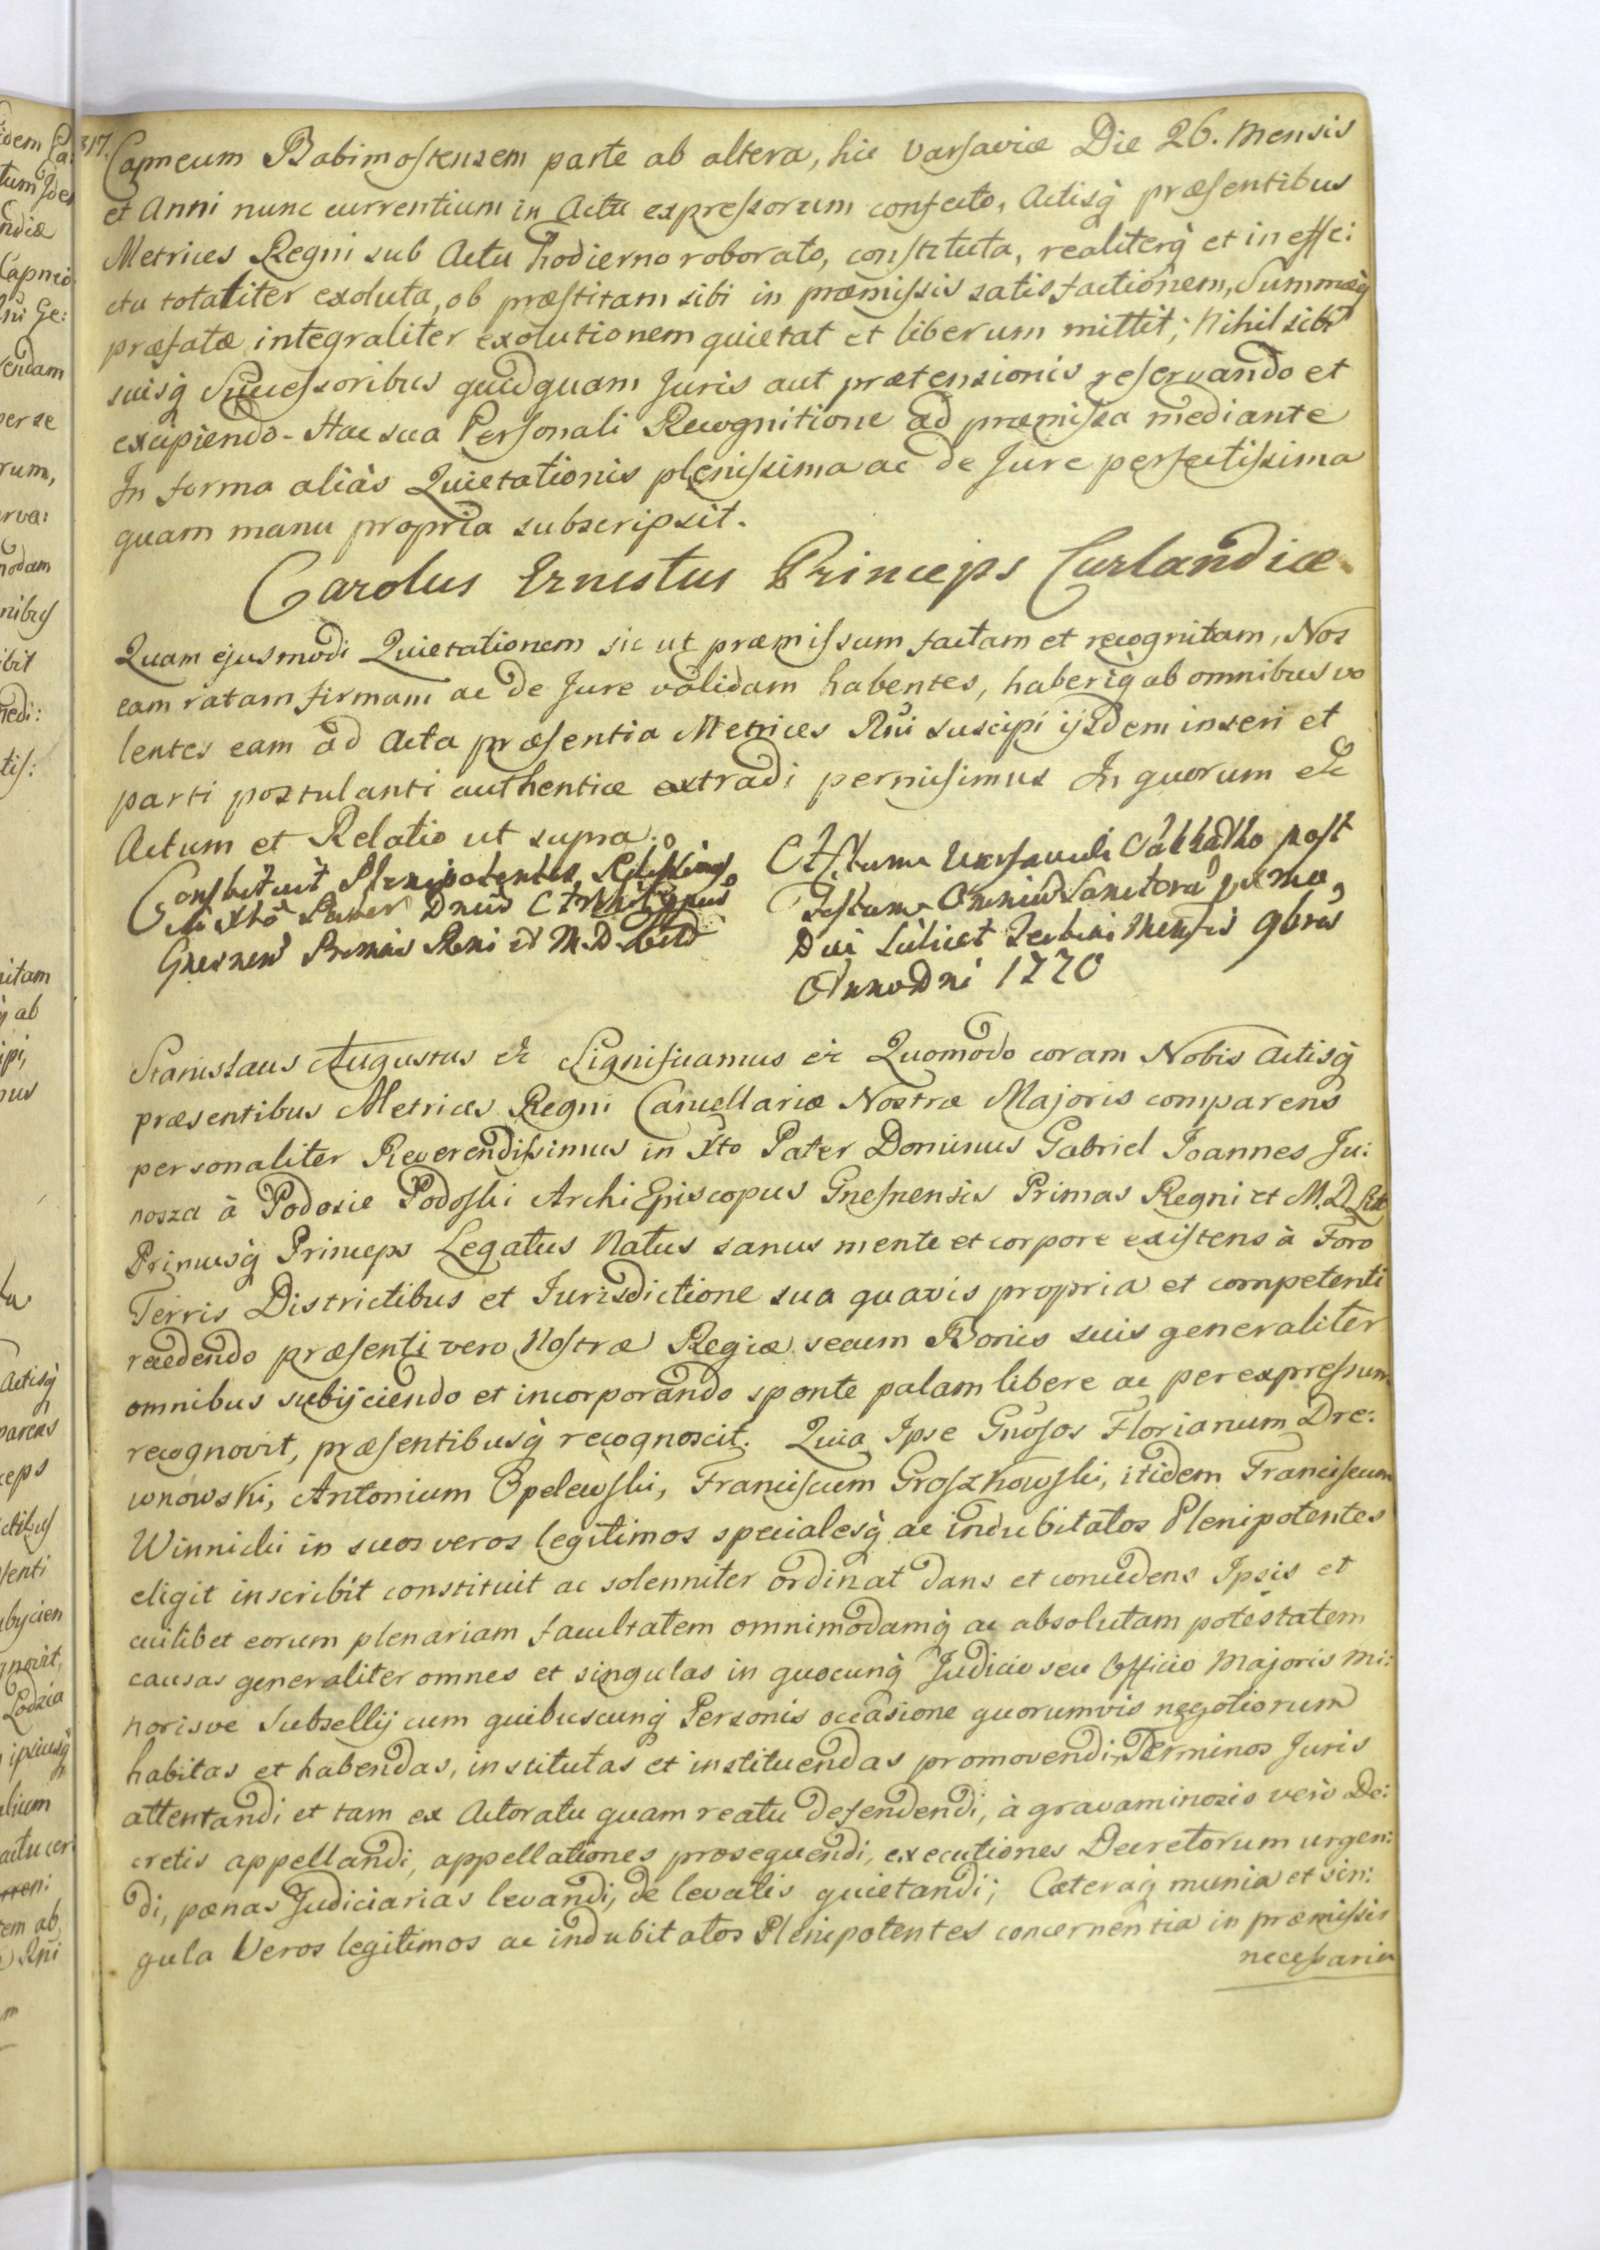 317.
Capneum Babimostensem parte ab altera, hic Varsaviæ Die 26. Mensis
et Anni nunc currentium in Actu expressorum confecto, Actisq̀ præsentibus
Metrices Regni sub Actu hodierno roborato, constituta, realiterq̀ et in effe:
ctu totaliter exoluta, ob præstitam sibi in præmissis satisfactionem, Summæq̀
præfatæ integraliter exolutionem quietat et liberum mittit; Nihil sibi
suisq̀ Successoribus quidquam Juris aut prætensionis reservando et
excipiendo - Hac sua Personali Recognitione ad præmissa mediante
In forma aliàs Quietationis plenissima ac de Jure perfectissima
quam manu propria subscripsit.
Carolus Ernestus Princeps Curlandiæ
Quam ejusmodi Quietationem sic ut præmissum factam et recognitam, Nos
eam ratam firmam ac de Jure validam habentes, haberiq̀ ab omnibus vo
lentes eam ad Acta præsentia Metrices Rñi suscipi ijsdem inseri et
parti postulanti authentice extradi permisimus In quorum &c
Actum et Relatio ut supra.
Constituit Plenipotentes
Xto Pater Dnus
Gnesnen Primas Rni et M.D.
Actum Varsaviæ Sabbatho post
Festum Omnium Sanctorum primo,
Die scilicet Tertia Mensis 9bris
Anno Dni 1770
Stanislaus Augustus &c Significamus &c Quomodo coram Nobis Actisq̀
præsentibus Metrices Regni Cancellariæ Nostræ Majoris comparens
personaliter Reverendissimus in Xto Pater Dominus Gabriel Joannes Ju:
nosza à Podosie Podoski ArchiEpiscopus Gnesnensis Primas Regni et M.D.Litt
Primusq̀ Princeps Legatus Natus sanus mente et corpore existens à Foro
Terris Districtibus et Jurisdictione sua quavis propria et competenti
recedendo præsenti vero Nostræ Regiæ secum Bonis suis generaliter
omnibus subijciendo et incorporando sponte palam libere ac per expressum
recognovit, præsentibusq̀ recognoscit. Quia Ipse Gnosos Florianum Dre:
wnowski, Antonium Opelewski, Franciscum Groszkowski, itidem Franciscum
Winnicki in suos veros legitimos specialesq̀ ac indubitatos Plenipotentes
eligit inscribit constituit ac solenniter ordinat dans et concedens Ipsis et
cuilibet eorum plenariam facultatem omnimodamq̀ ac absolutam potestatem
causas generaliter omnes et singulas in quocunq̀ Judicio seu Officio Majoris Mi:
norisve Subsellij cum quibuscunq̀ Personis occasione quorumvis negotiorum
habitas et habendas, institutas et instituendas promovendi, Terminos Juris
attentandi et tam ex Actoratu quam reatu defendendi, à gravaminosis verò De:
cretis appellandi, appellationes prosequendi, executiones Decretorum urgen:
di, pœnas Judiciarias levandi, de levatis quietandi; Cæteraq̀ munia et sin:
gula Veros legitimos ac indubitatos Plenipotentes concernentia in præmissis
necessaria